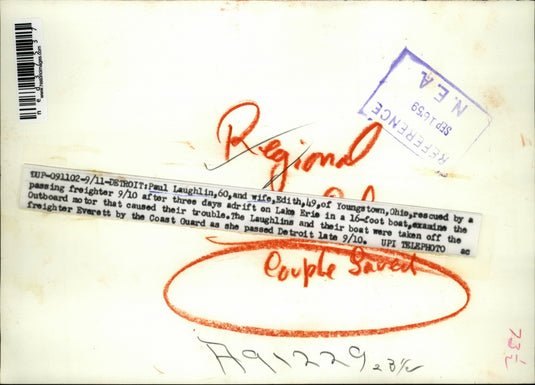 REFERENCE
SEP 1 1959
N. E. A.
Regional
DUP-091102-9/11-DETROIT:Paul Laughlin,60,and wife,Edith,49,of Youngstown,Ohio,rescued by a
passing freighter 9/10 after three days adrift on Lake Erie in a 16-foot boat,examine the
Outboard motor that caused their trouble.The Laughlins and their boat were taken off the
freighter Everett by the Coast Guard as she passed Detroit late 9/10. UPI TELEPHOTO ac
Couple Saved
A91229